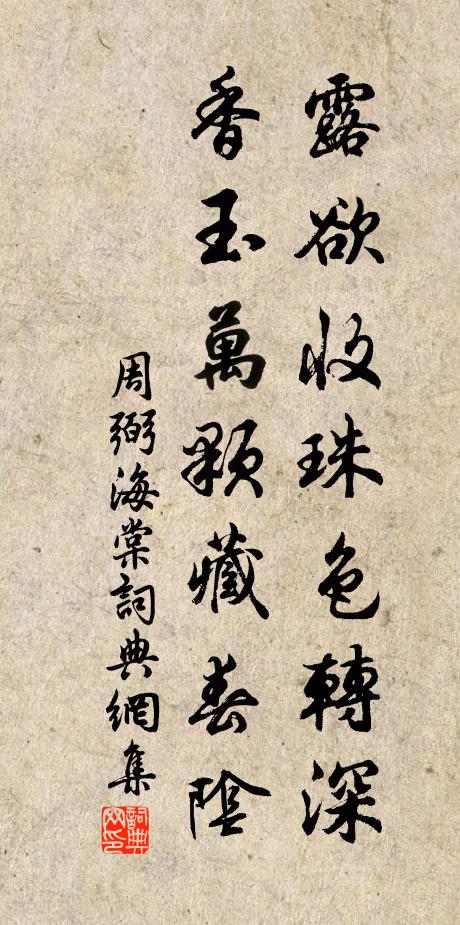 露欲收珠色轉深
香玉萬顆藏春陰
周弼海棠詞典網集
詞典网印